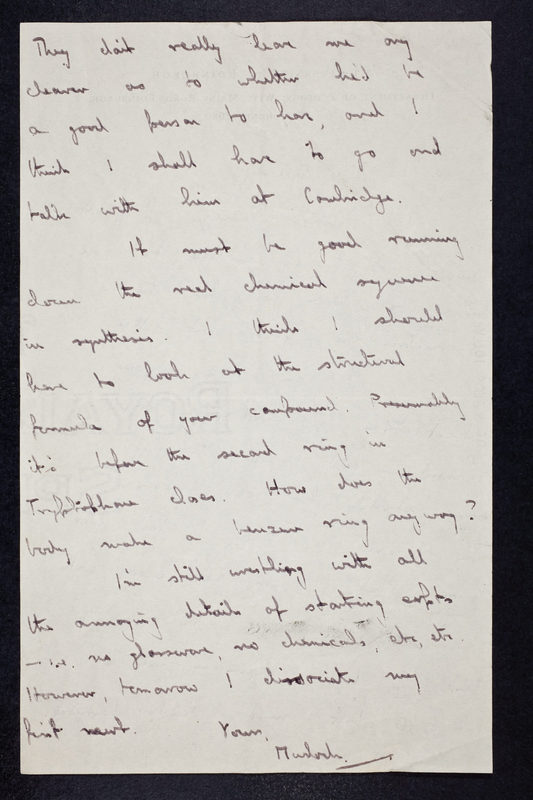 They don't really leave me any
clearer as to whether he'd be
a good person to have, and I
think I shall have to go and
talk with him at Cambridge.
It must be good running
down the real chemical sequence
in synthesis. I think I should
have to look at the structural
formula of your compound. Presumably
it's before the second ring in
Tryptophane closes. How does the
body make a benzene ring anyway?
I'm still wrestling with all
the annoying details of starting expts
— i.e. no glassware, no chemicals, etc, etc.
However, tomorrow I dissociate my
first newt. Yours,
Murdoch.